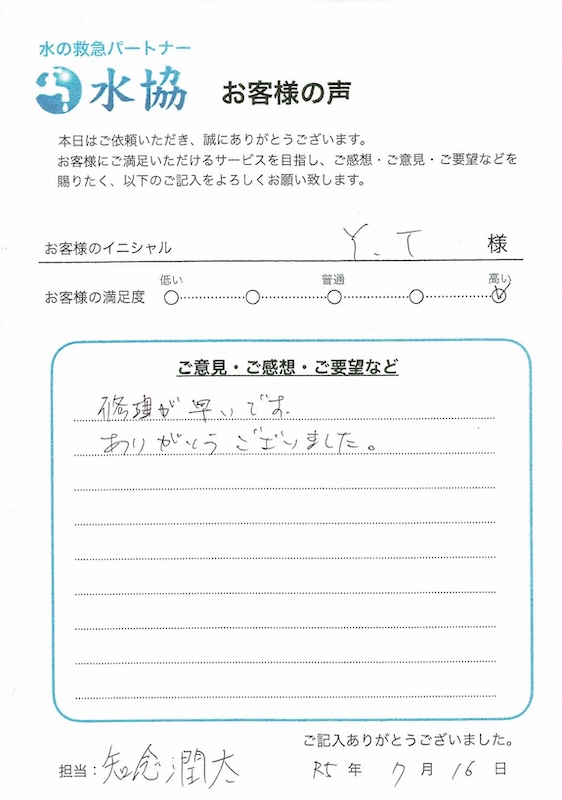 水の救急パートナー
水協 お客様の声
本日はご依頼いただき、誠にありがとうございます。
お客様にご満足いただけるサービスを目指し、ご感想・ご意見・ご要望などを
賜りたく、以下のご記入をよろしくお願い致します。
お客様のイニシャル Y.T 様
低い 普通 高い
お客様の満足度
ご意見・ご感想・ご要望など
修理が早いです.
ありがとうございました。
ご記入ありがとうございました。
担当：知念潤大 R5年 7月 16日